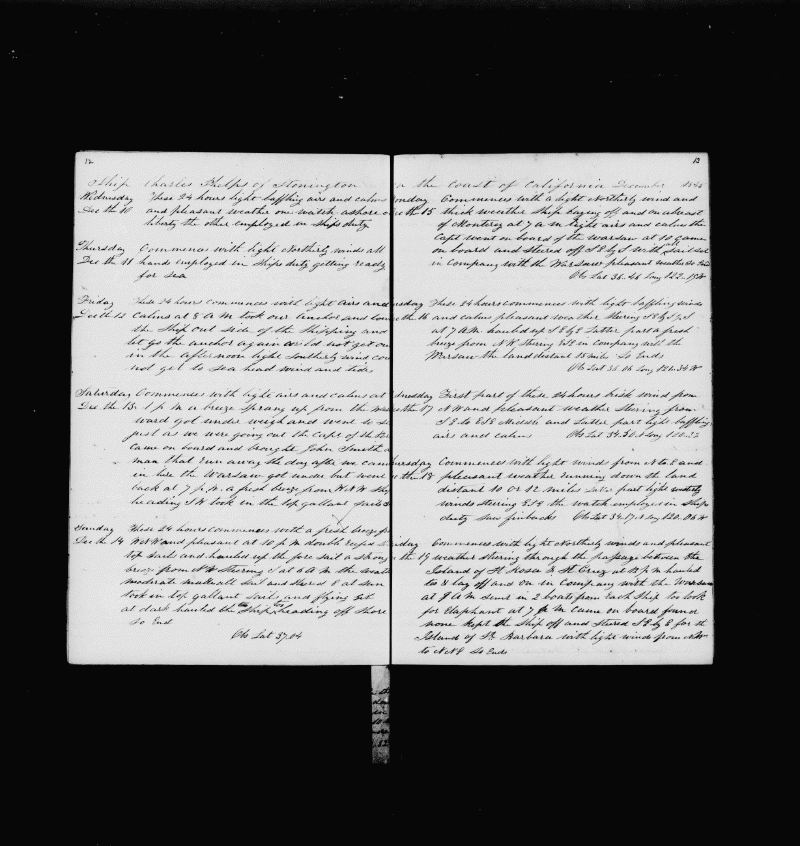 12
Ship Charles Phelps of Stonington
Wednesday These 24 hours light baffling airs and calms
Dec the 10 and pleasant weather one watch ashore on
liberty the other employed in Ships duty
Thursday Commence with light Northerly winds all
Dec the 11 hands employed in Ships duty getting ready
for sea
Friday These 24 hours commences with light airs and
Dec the 12 Calms at 8 A M took our anchor and
the Ship out side of the Shipping and
let go the anchor again could not get out
in the afternoon light Southerly wind
not get to sea head winds and tides
Saturday Commences with light airs and calms at
Dec the 13 1 P M a breeze sprang up from the
ward got under weigh and went to
just as we were going out the Capt of the
Came on board and brought John Smith a
man that run away the day after we came
in here the Warsaw got under but went
back at 7 P. M. a fresh breeze from W N W Ship
heading S W took in the top gallant sails
Sunday These 24 hours commences with a fresh breeze
Dec the 14 N W and pleasant at 10 P M double reefed
top Sails and hauled up the fore sail a strong
breeze from N W Steering S at 6 A M the
moderate made all Sail and Steered E at
took in top gallant Sails and flying
at dark hauled the Ship heading off Shore
So End
Obs Lat 37.04
13
the Coast of California December 1845
Monday Commences with a light Northerly wind and
the 15 thick weather Ship laying off and on abreast
of Monterey at 7 A M light airs and calms the
Capt went on board of the Warsaw at 10 came
on board and Steered off S by W with all Sail set
in Company with the Warsaw pleasant weather So End
Obs Lat 36.46 Long 122.19 W
These 24 hours commences with light baffling winds
the 16 and calms pleasant weather Steering S by W
at 7 A M hauled up S E by E Latter part a fresh
breeze from N W Steering ESE in Company with the
Warsaw the land distant 15 miles So Ends
Obs Lat 35.06 Long 121.34 W
First part of these 24 hours brisk wind from
the 17 N W and pleasant weather Steering from
S E to ESE Middle and Latter part light baffling
airs and calms Obs Lat 34.30 Long 120.32
Thursday Commences with light wind from N to E and
the 18 pleasant weather running down the land
distant 10 or 12 miles Later part light westerly
winds steering ESE the watch employed in Ships
duty Saw finbacks Obs Lat 34.17 Long 120.06 W
Commences with light Northerly winds and pleasant
the 19 weather steering through the passage between the
Island of St Rosa & St Cruz at 12 P M hauled
to & lay off and on in Company with the Warsaw
at 9 A M sent in 2 boats from Each Ship to look
for Elephant at 7 P M came on board found
none kept the Ship off and Steered S E by E for the
Island of St Barbara with light winds from NW
to N N E So Ends